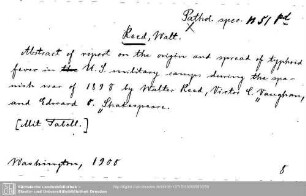 Pathol. spec. 1151
Reed, Walt.
Abstract of report on the origin and spread of typhoid
fever in the U. S. military camps during the spa-
nish war of 1898 by Walter Reed, Victor C. Vaughan,
and Edward O. Shakespeare.
[Mit Tabell.]
Washington, 1900
8